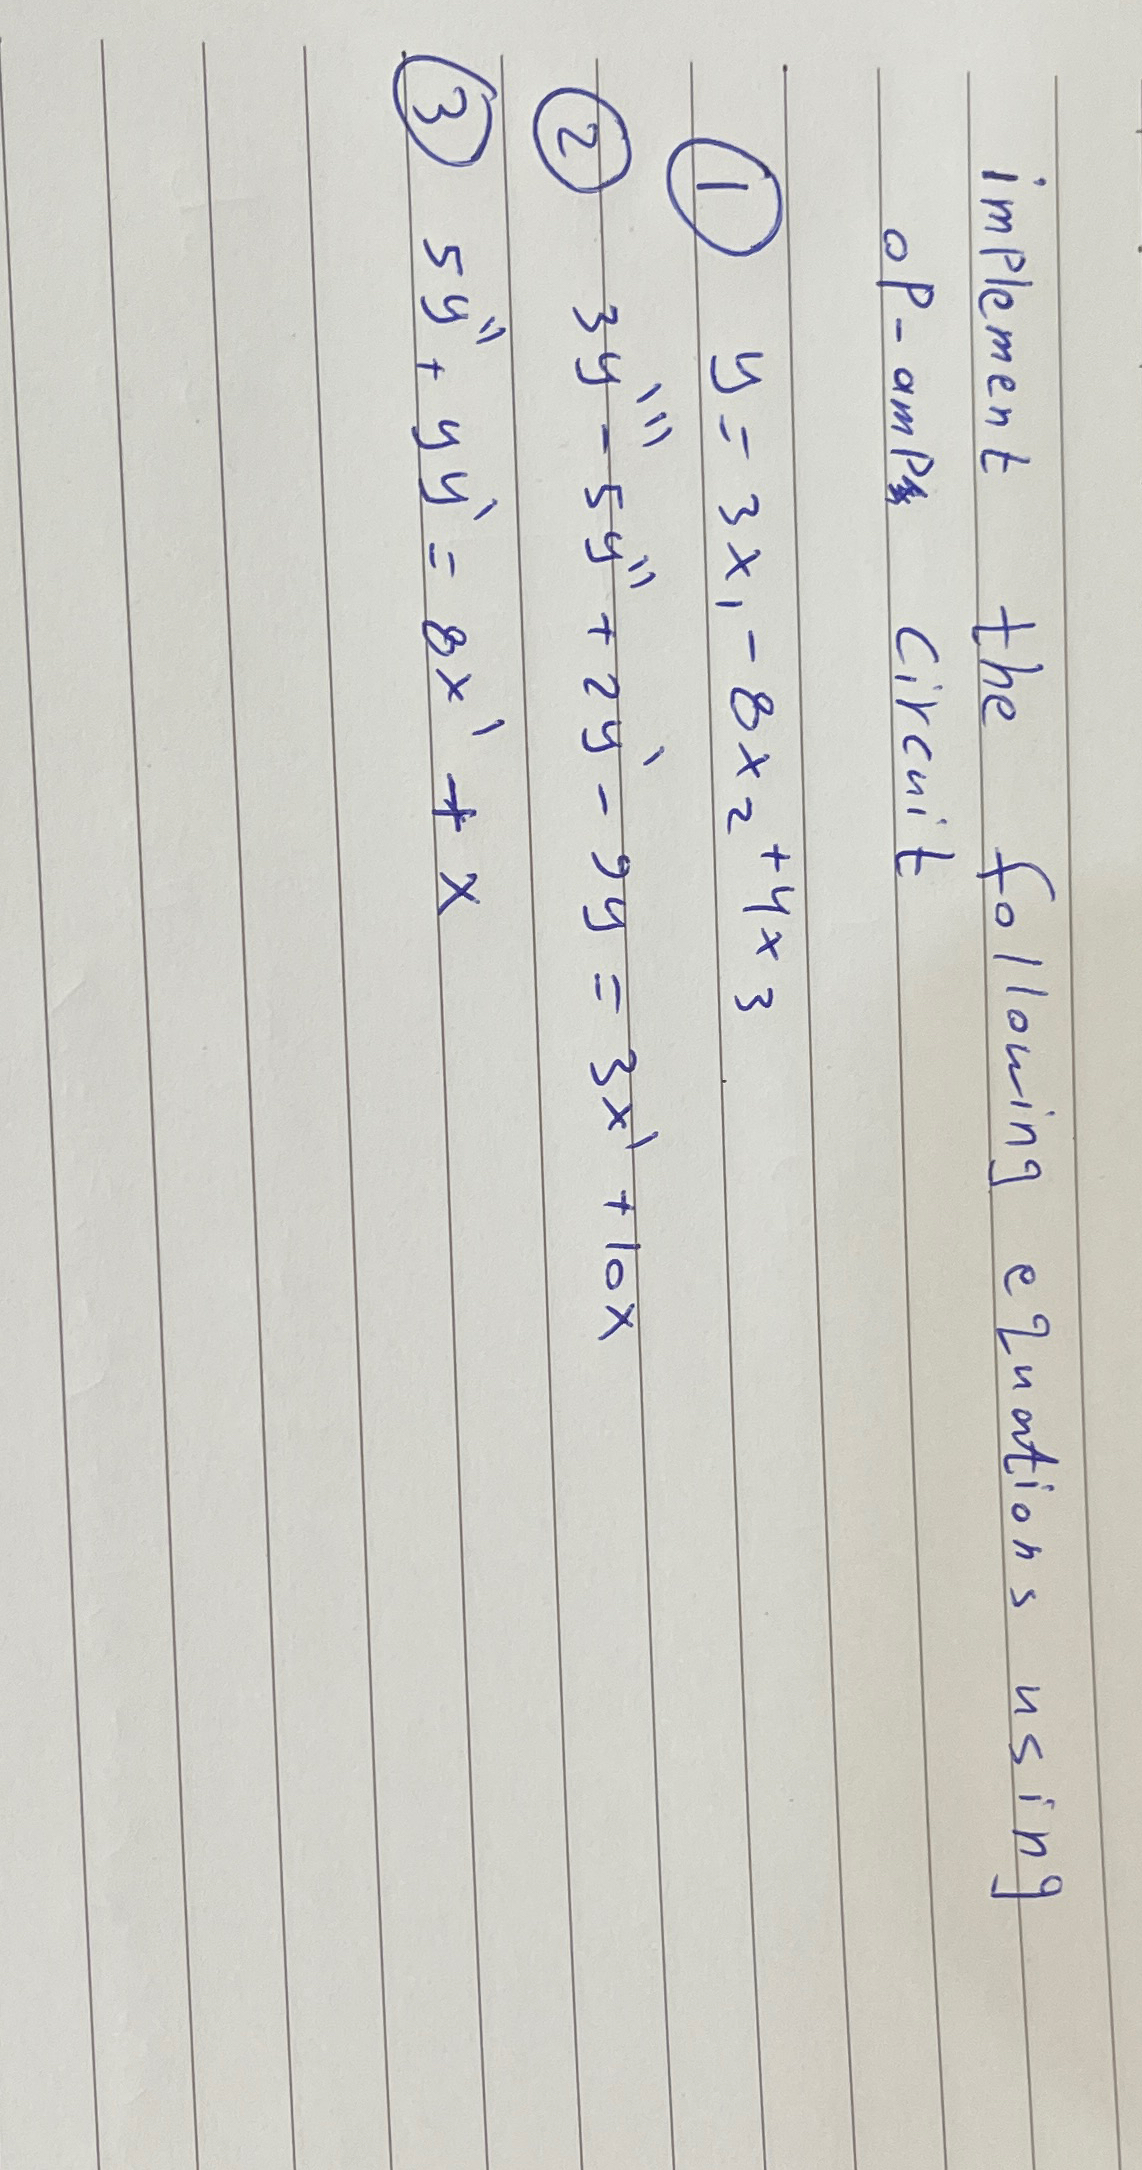 implement the following equations using
op-amps circuit
① y = 3x₁ - 8x₂ + 4x₃
② 3y''' - 5y'' + 2y' - 9y = 3x' + 10x
③ 5y'' + yy' = 8x' + x